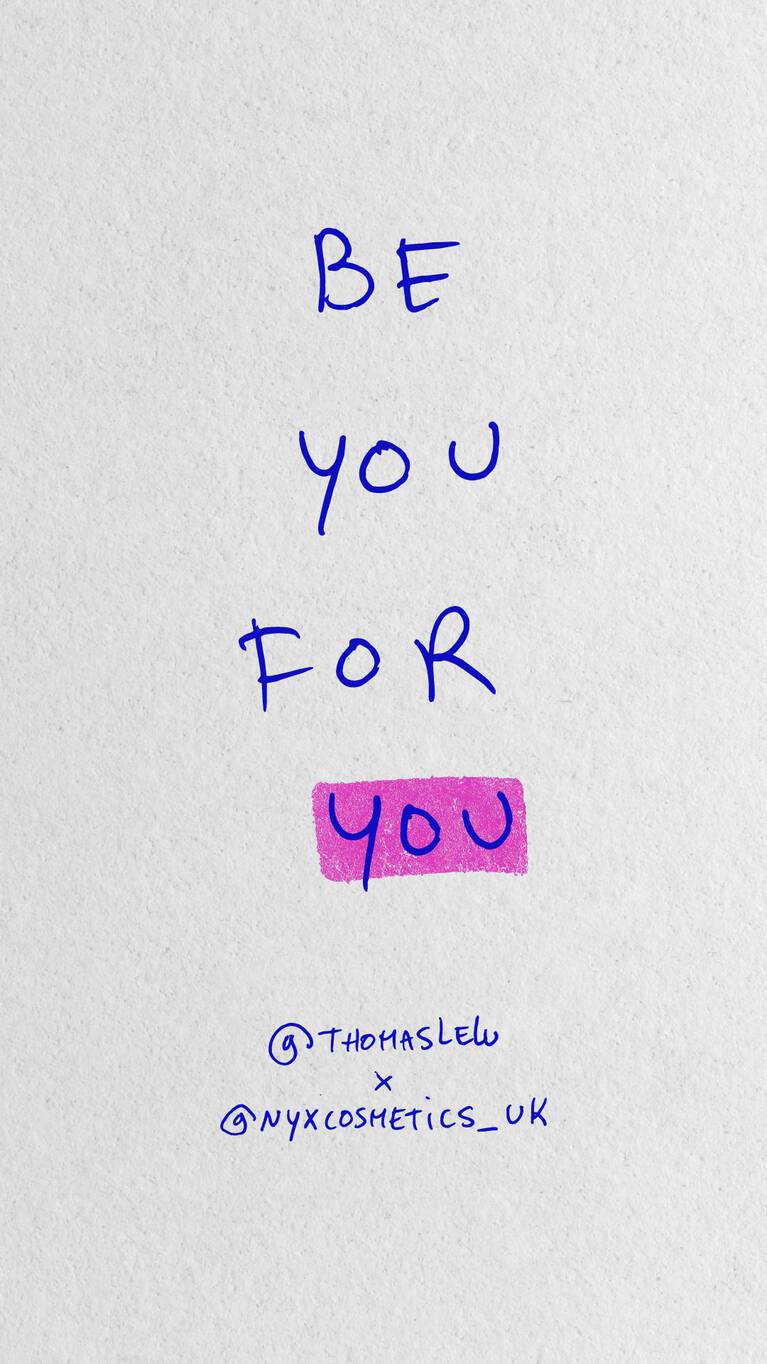 BE
YOU
FOR
YOU
@THOMASLELU
x
@NYXCOSMETICS_UK